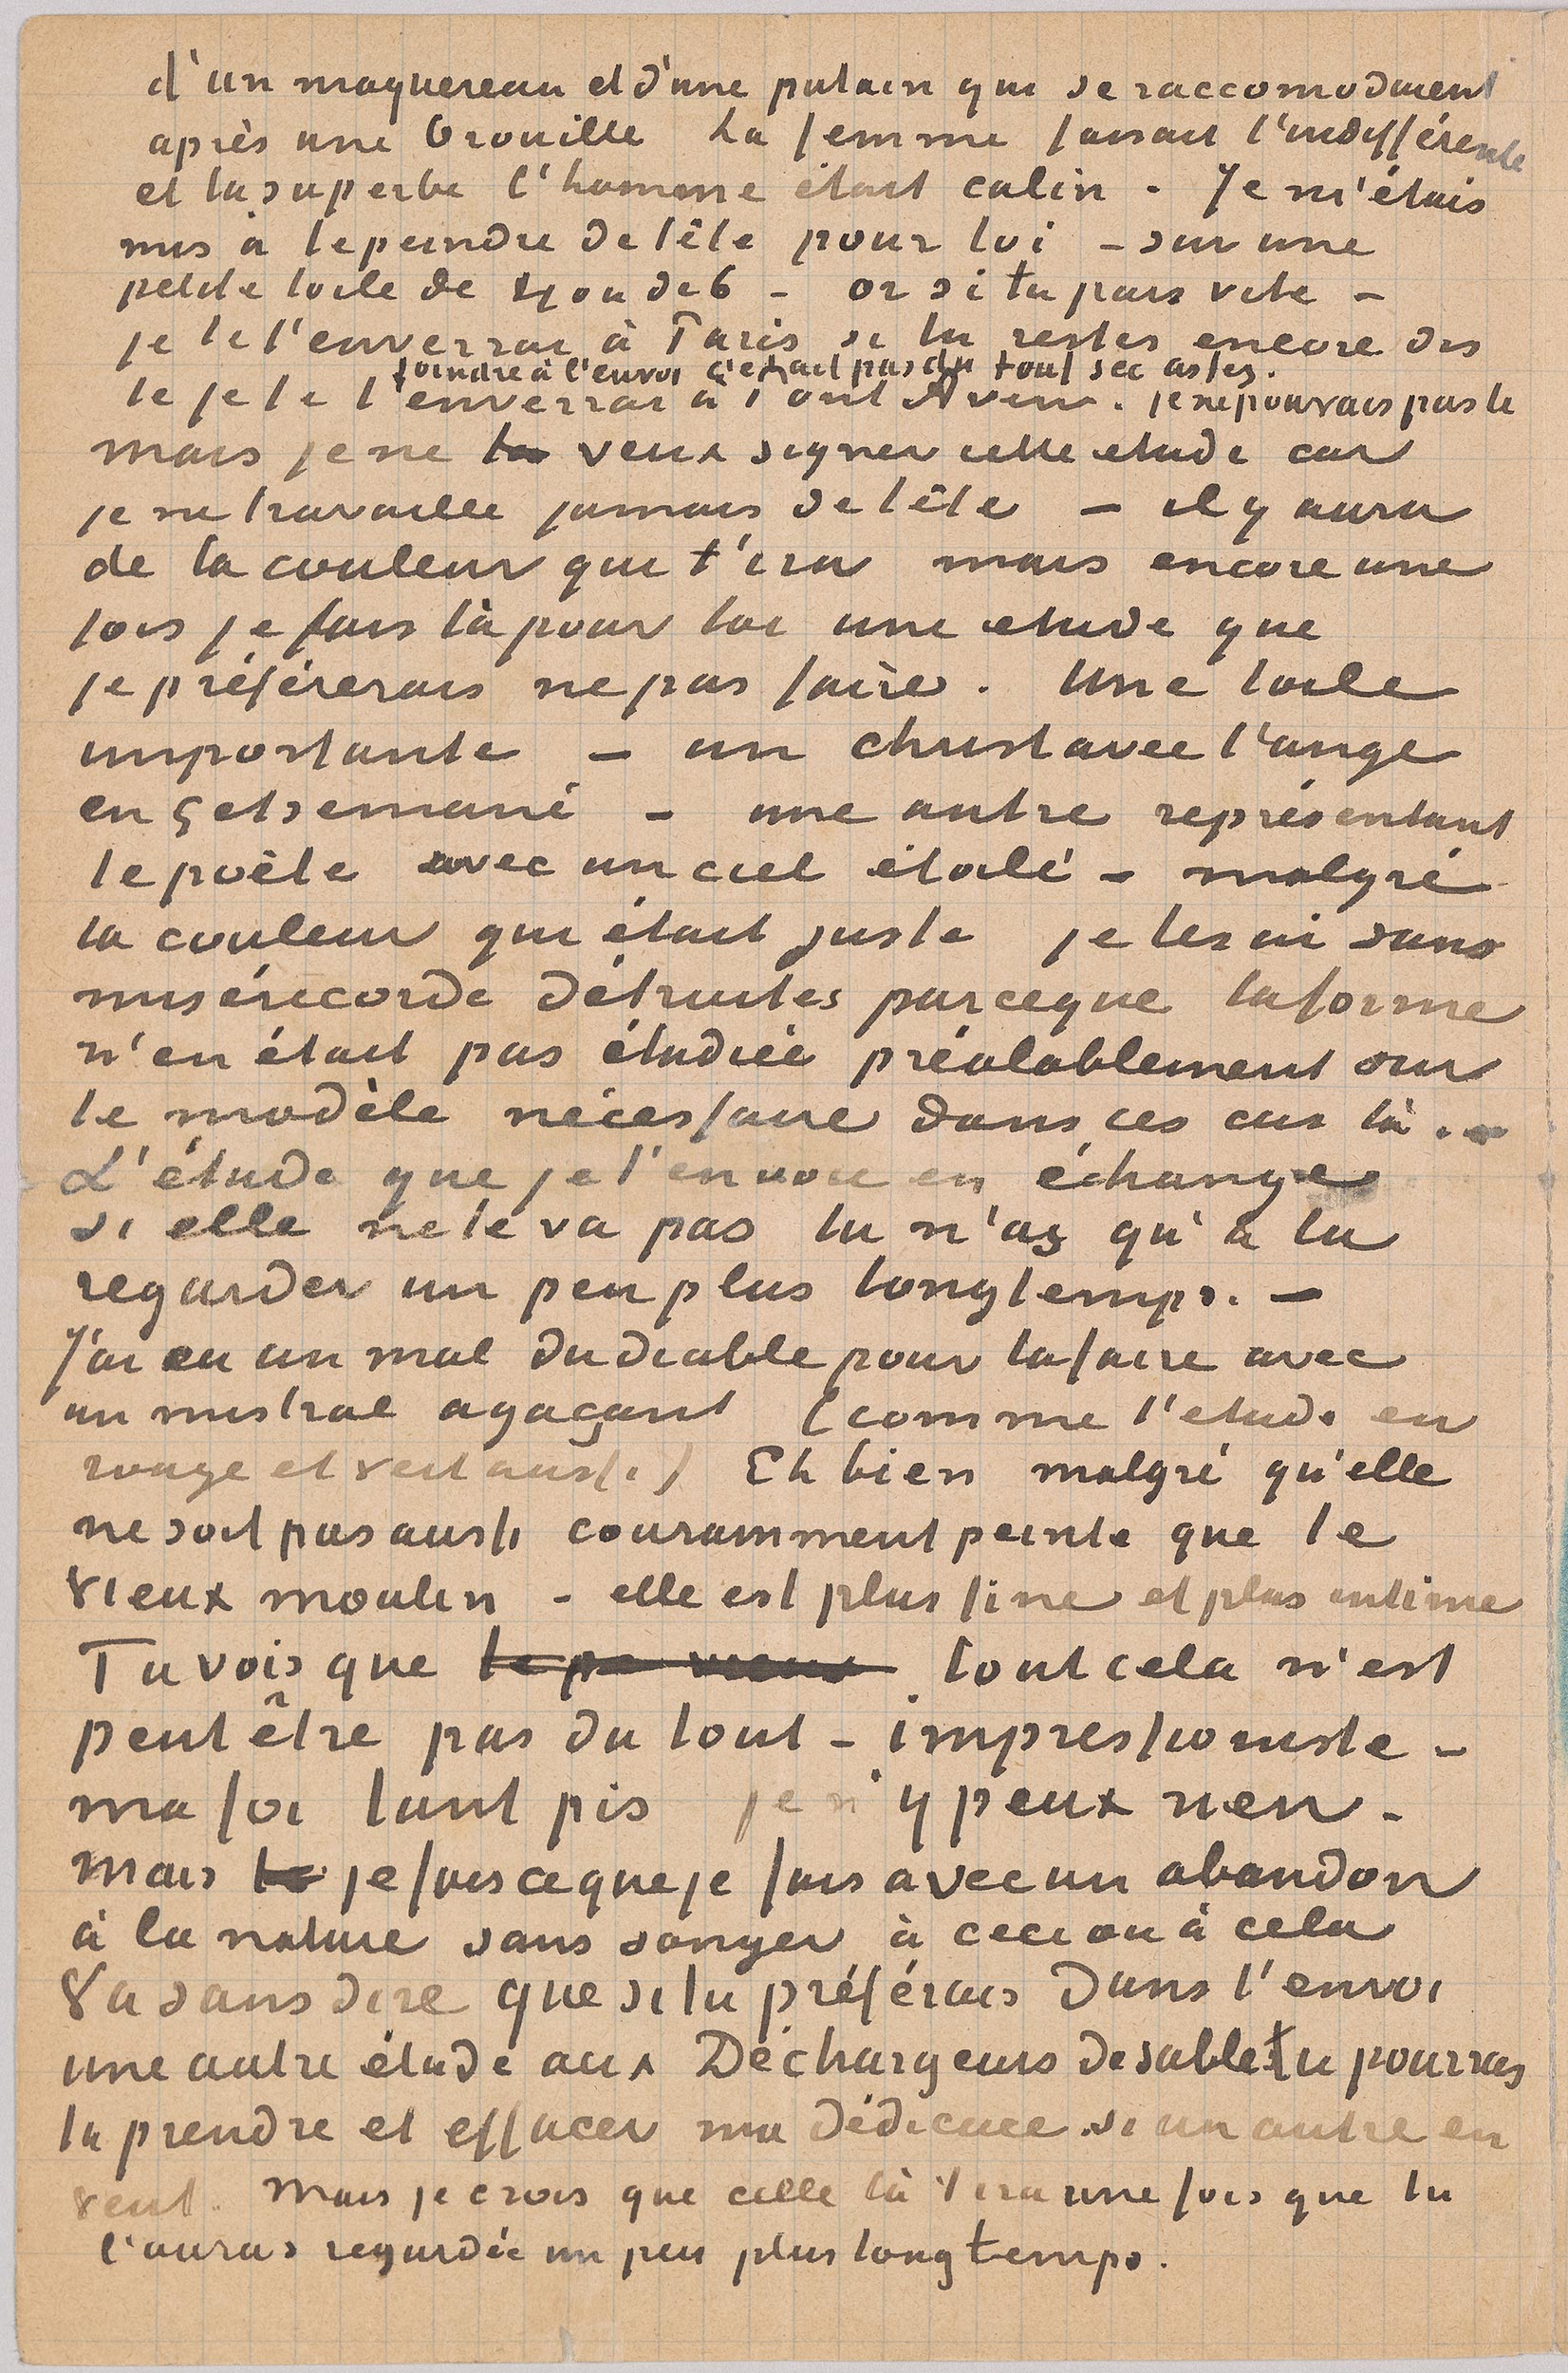 d'un maquereau et d'une putain qui se raccomodaient
après une brouille La femme faisait l'indifférente
et la superbe l'homme était calin . Je m'étais
mis à te peindre de tête pour toi – sur une
petite toile de 4 ou de 6 – or si tu pars vite –
je te l'enverrai à Paris si tu restes encore dis
joindre à l'envoi c'etait pas du tout sec assez.
le je te l'enverrai à Pont Aven . je ne pouvais pas le
mais je ne veux signer cette etude car
je ne travaille jamais de tête – il y aura
de la couleur qui t'ira mais encore une
fois je fais là pour toi une etude que
je préférerais ne pas faire . Une toile
importante – un christ avec l'ange
en Getsemané – une autre représentant
le poète avec un ciel étoilé – malgré
la couleur qui était juste je les ai sans
miséricorde détruites parceque la forme
n'en était pas étudiée préalablement sur
le modèle nécessaire dans ces cas là . –
L'étude que je t'envoie en échange
si elle ne te va pas tu n'as qu'à la
regarder un peu plus longtemps. –
J'ai eu un mal du diable pour la faire avec
un mistral agaçant (comme l'etude en
rouge et vert aussi) Eh bien malgré qu'elle
ne soit pas aussi couramment peinte que le
vieux moulin – elle est plus fine et plus intime
Tu vois que tout cela n'est
peut être pas du tout – impressioniste –
ma foi tant pis je n'y peux rien –
mais je fais ce que je fais avec un abandon
à la nature sans songer à ceci ou à cela
Va sans dire que si tu préférais dans l'envoi
une autre étude aux Déchargeurs de sable tu pourras
la prendre et effacer ma dédicace si un autre en
veut. Mais je crois que celle là t'ira une fois que tu
l'auras regardée un peu plus longtemps.